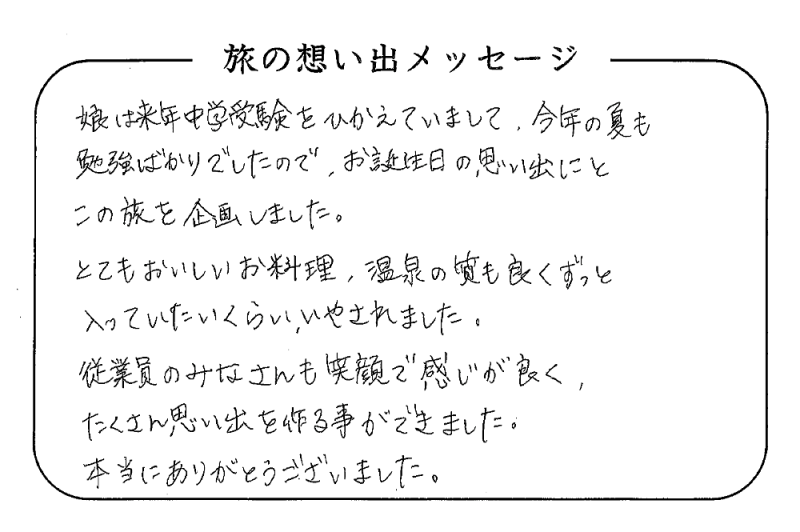 旅の想い出メッセージ
娘は来年中学受験をひかえていまして、今年の夏も
勉強ばかりでしたので、お誕生日の思い出にと
この旅を企画しました。
とてもおいしいお料理、温泉の質も良くずっと
入っていたいくらい、いやされました。
従業員のみなさんも笑顔で感じが良く、
たくさん思い出を作る事ができました。
本当にありがとうございました。